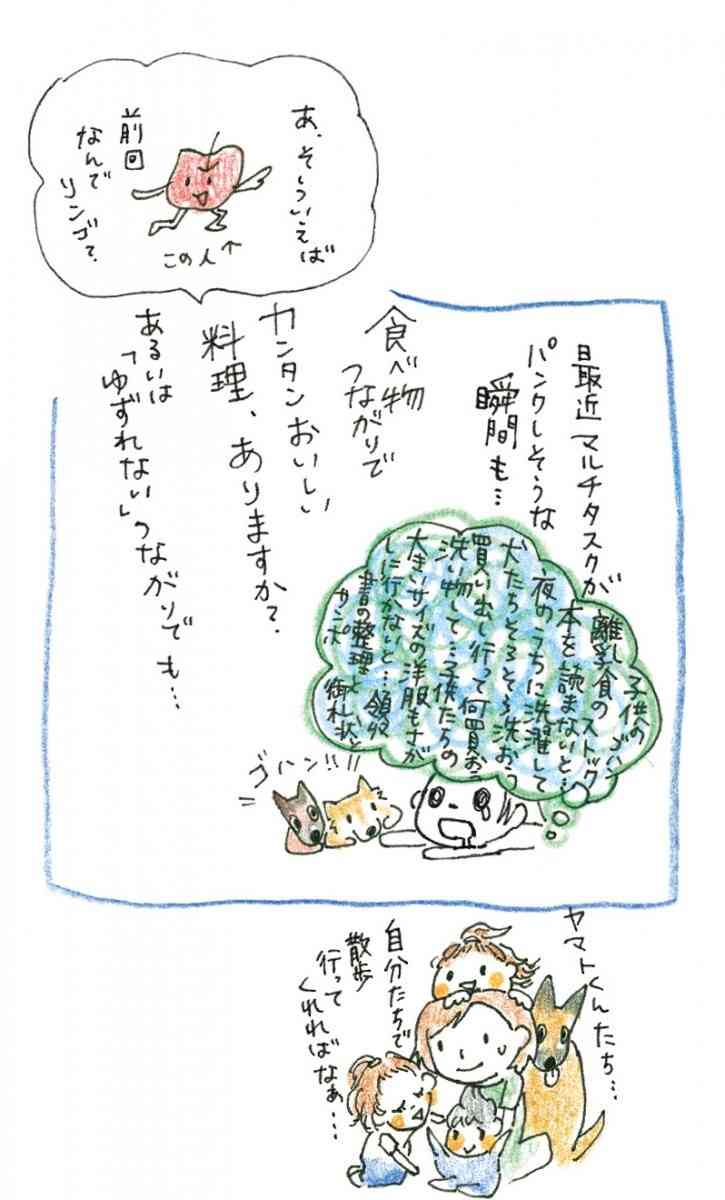 あ、そういえば
前回
なんで
リンゴ?
この人↑
最近マルチタスクが
パンクしそうな
瞬間も…
子供のゴハン
離乳食のストック
本を読まないと…
夜のうちに洗濯して
犬たちそろそろ洗おう
買い出し行って何買おう
洗い物して…子供たちの
大きいサイズの洋服もさが
しに行かないと…領収
書の整理と
御礼状と
サンポ
ゴハン!!
食べ物
つながりで
カンタンおいしい
料理、ありますか?
あるいは
「ゆずれない」つながりでも…
ヤマトくんたち…
自分たちで
散歩
行って
くれればなぁ…